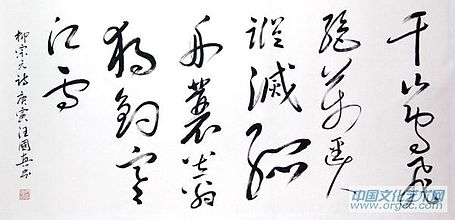 千山鸟飞
绝萬径人
踪滅孤
舟蓑笠翁
独钓寒
江雪
柳宗元诗 庚寅汪國真书
中国文化艺术网
www.orgcc.com